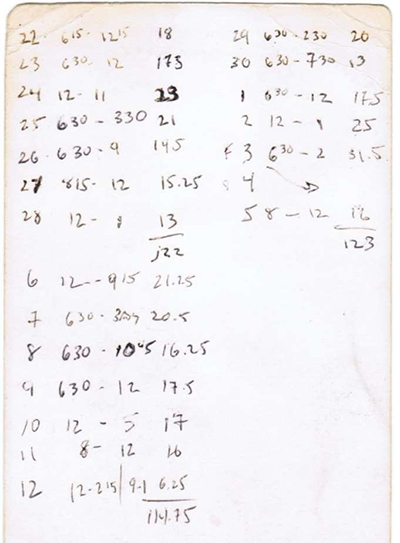 22 615 - 1215 18
23 630 - 12 175
24 12 - 11 23
25 630 - 330 21
26 630 - 9 145
27 815 - 12 15.25
28 12 - 1 13
122
6 12 - 915 21.25
7 630 - 20.5
8 630 - 1045 16.25
9 630 - 12 17.5
10 12 - 5 17
11 8 - 12 16
12 12-215 | 9-1 6.25
114.75
29 630 - 230 20
30 630 - 730 13
1 630 - 12 17.5
2 12 - 1 25
3 630 - 2 31.5
4
5 8 - 12 16
123